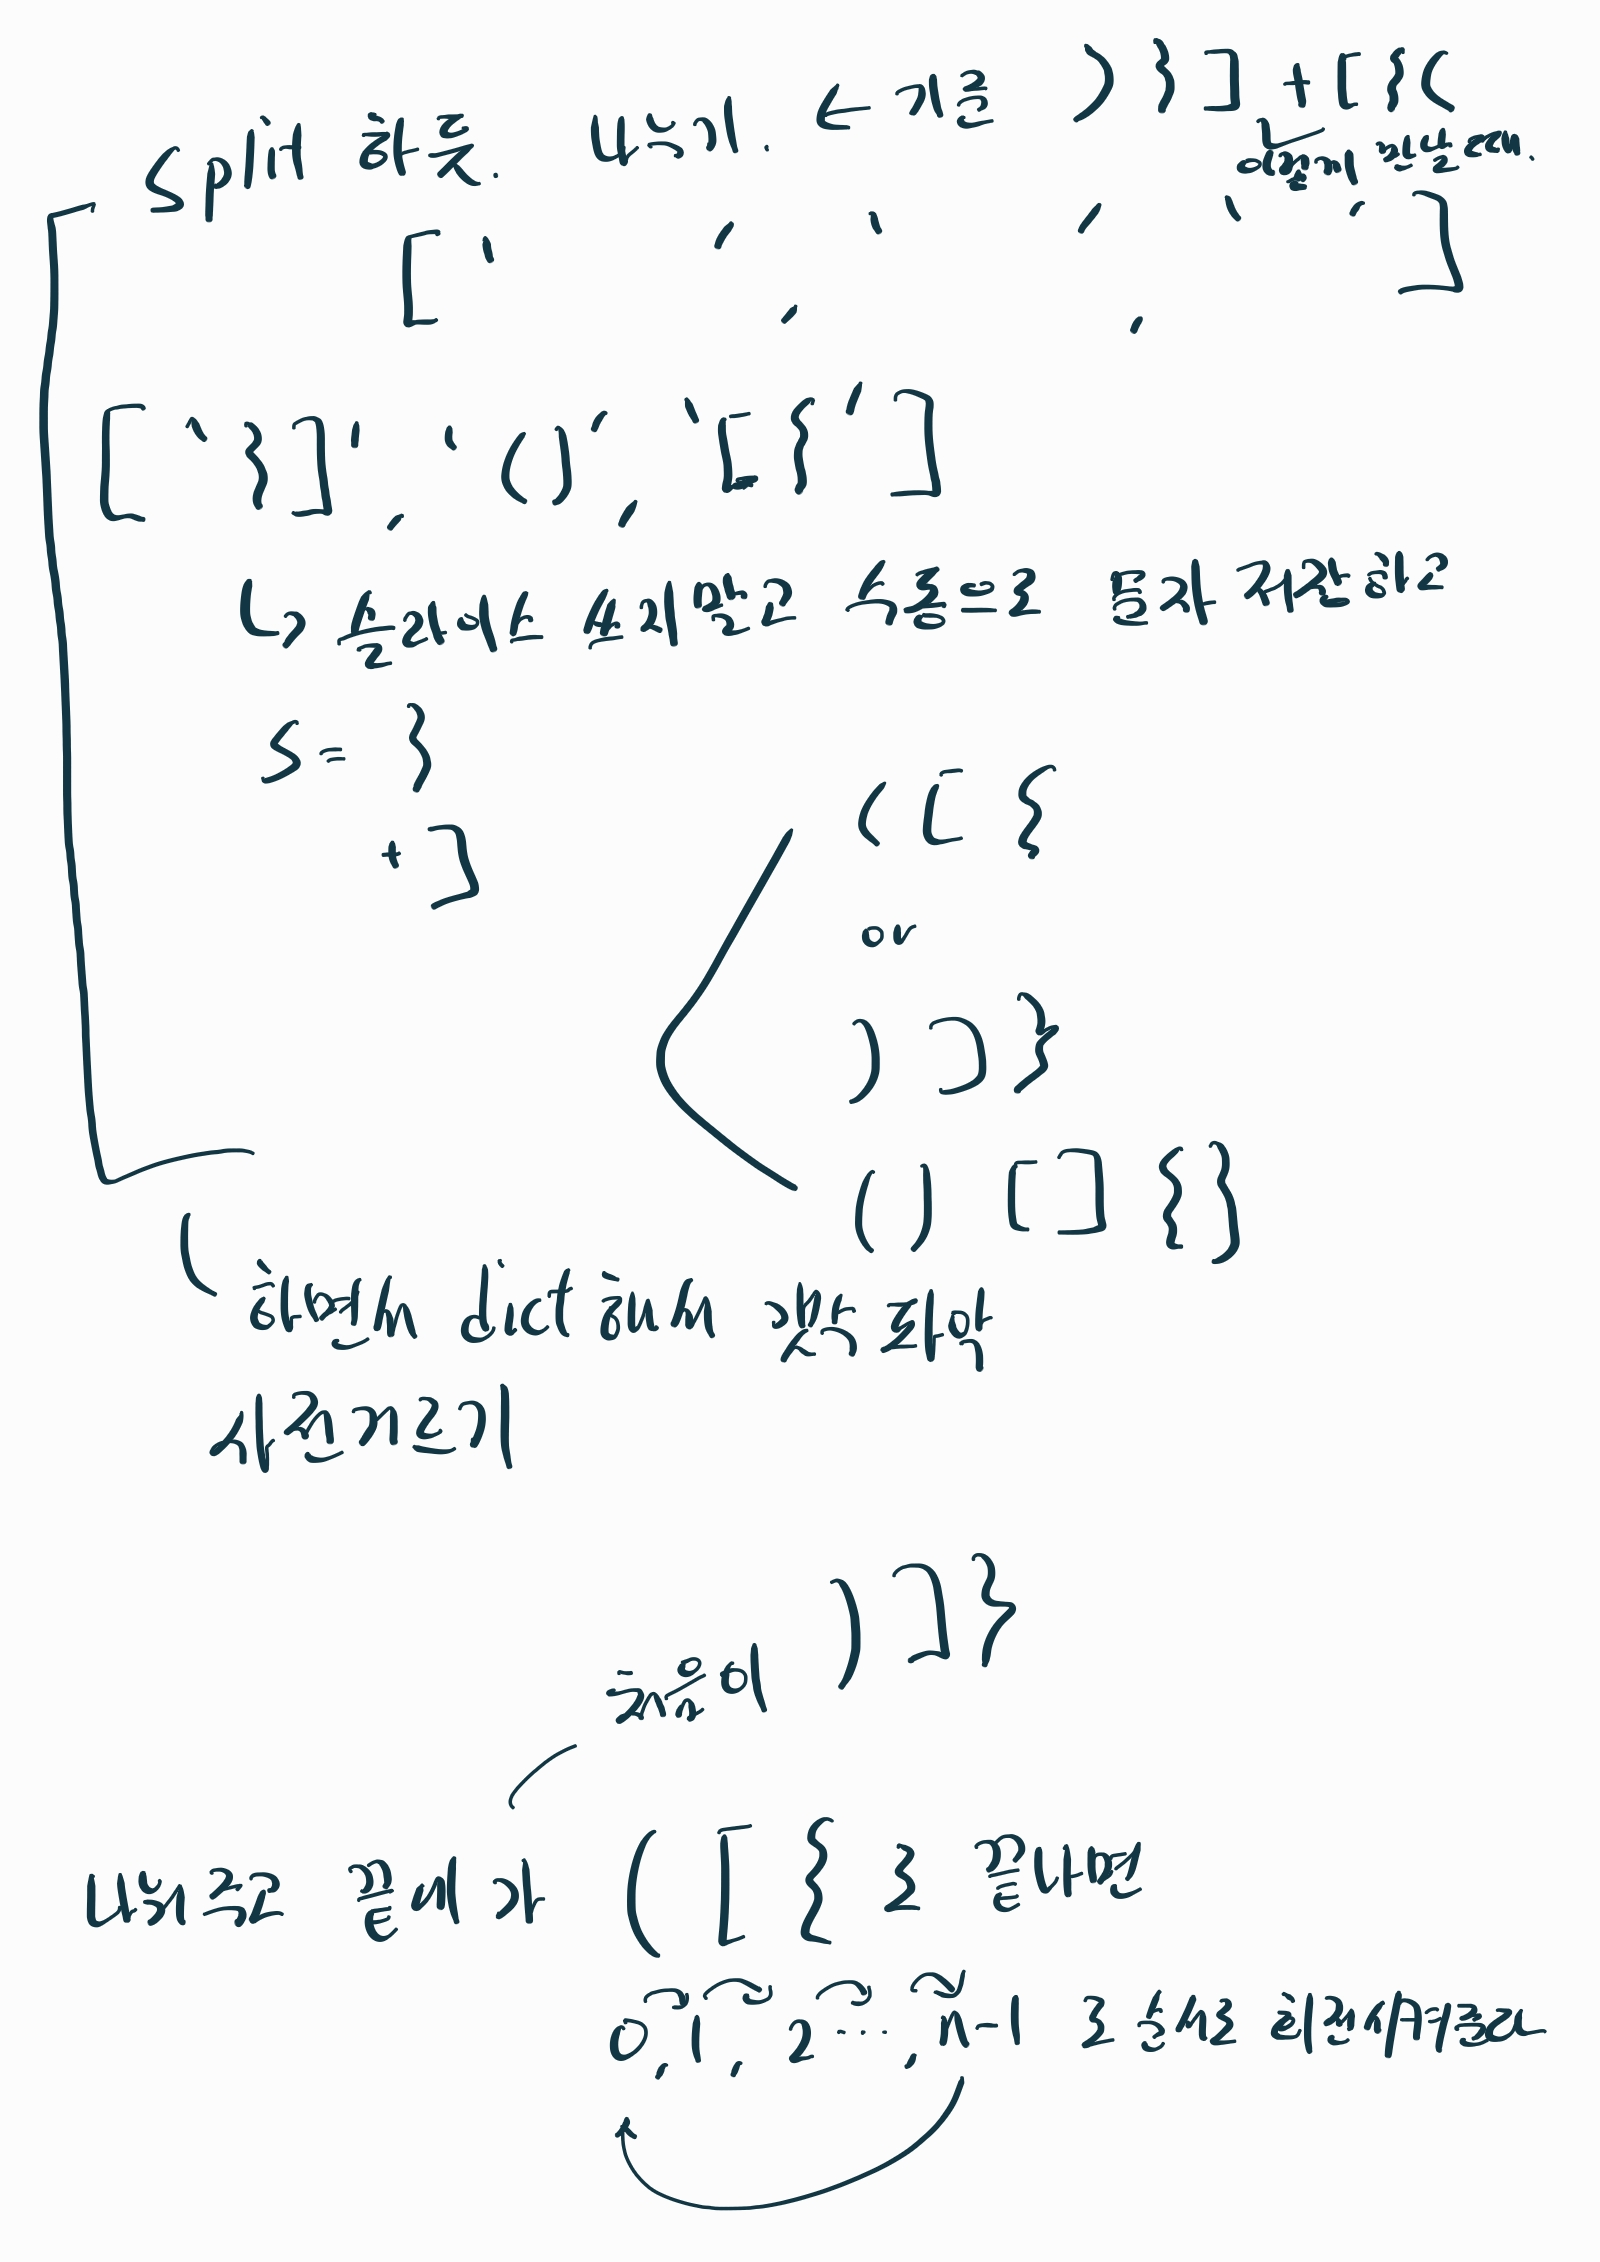 split 하듯. 나누기. ← 기준 ) } ] + [ { (
이렇게 만날때.
[ ' ' , ' ' , ' ' ]
[ ' } ] ' , ' ( ) ' , ' [ { ' ]
↳ 슬라이스 쓰지말고 수동으로 동작 저장하고
s = }
+ ]
( [ {
or
) ] }
( ) [ ] { }
하면서 dict 해서 갯수 파악
사전거르기
) ] }
처음이
나눠주고 끝에가 ( [ { 로 끝나면
0, 1, 2 ..., n-1 로 순서로 회전시켜줌